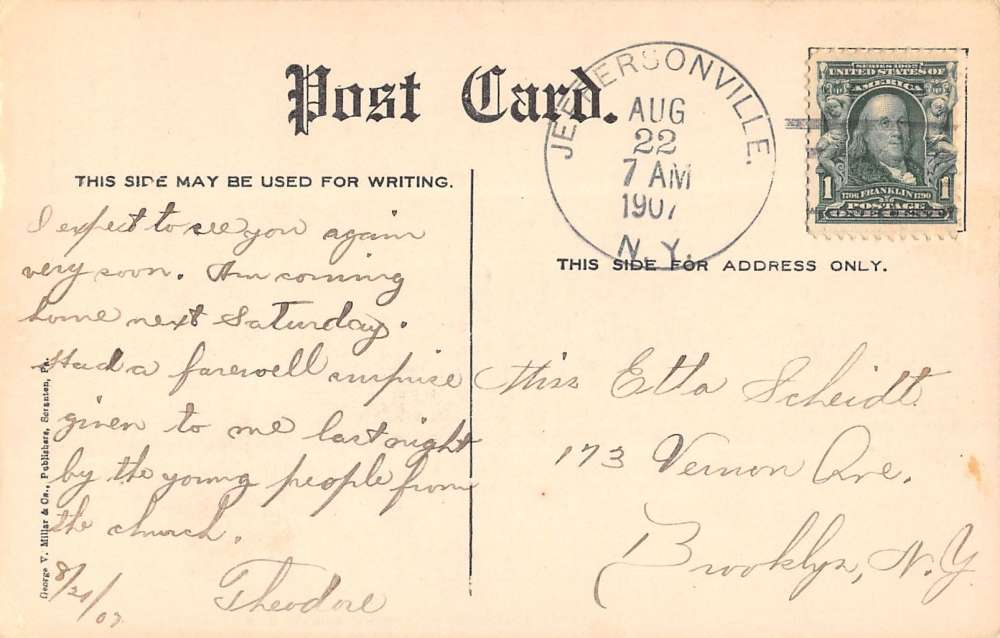 Post Card.
JEFFERSONVILLE.
AUG
22
7 AM
1907
N.Y.
SERIES 1902
UNITED STATES OF
AMERICA
1 1
1706 FRANKLIN 1790
POSTAGE
ONE CENT
THIS SIDE MAY BE USED FOR WRITING.
THIS SIDE FOR ADDRESS ONLY.
I expect to see you again
very soon. Am coming
home next Saturday.
Had a farewell surprise
given to me last night
by the young people from
the church.
Theodore
Miss Etta Scheidt
173 Vernon Ave.
Brooklyn, N.Y.
George V. Millar & Co., Publishers, Scranton, Pa.